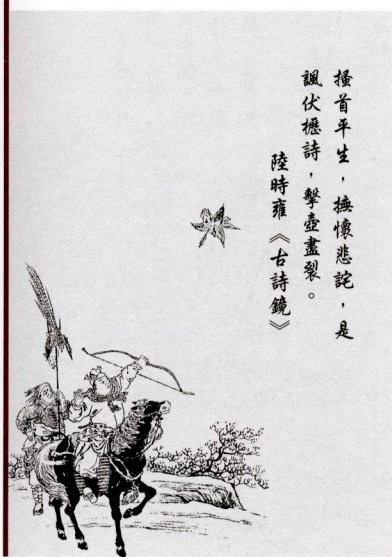 搔首平生，撫懷悲詫，是
諷伏櫪詩，擊壺盡裂。
陸時雍《古詩鏡》